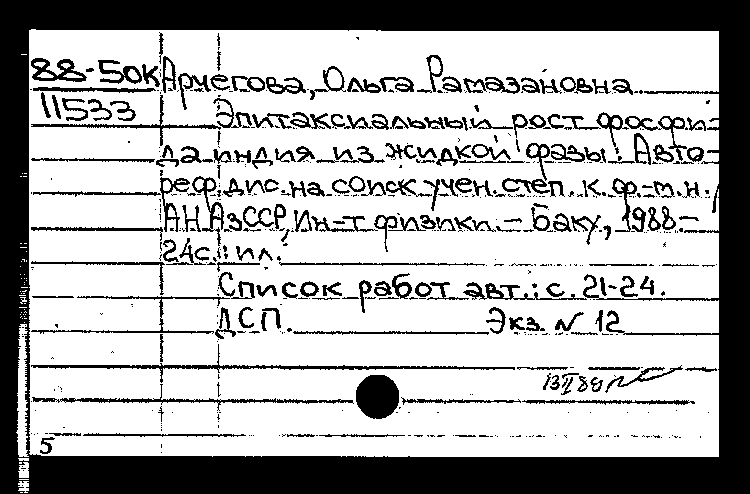 88-50к Арчегова, Ольга Рамазановна
11533 Эпитаксиальный рост фосфи-
да индия из жидкой фазы: Авто-
реф. дис. на соиск. учен. степ. к. ф.-м. н. /
АН АзССР, Ин-т физики. – Баку, 1988. –
24с.: ил.
Список работ авт.: с. 21-24.
ДСП. Экз. N 12
5